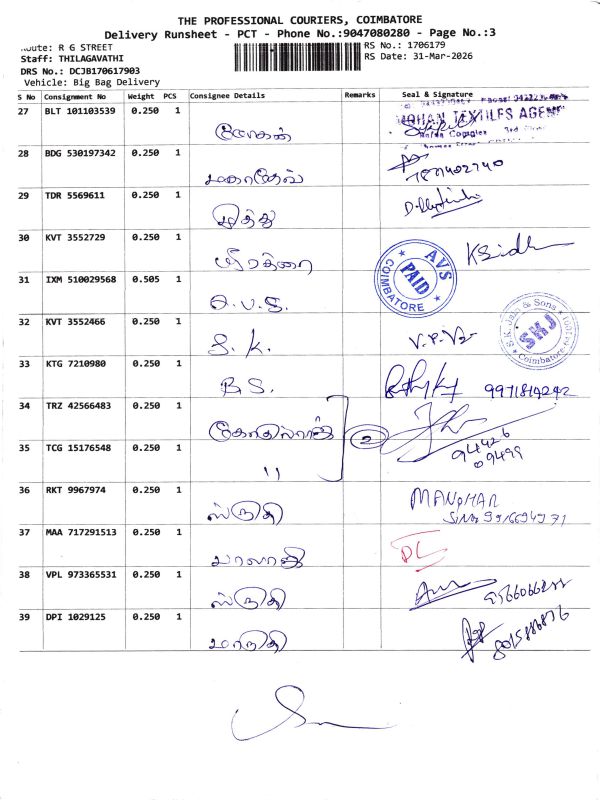 THE PROFESSIONAL COURIERS, COIMBATORE
Delivery Runsheet - PCT - Phone No.:9047080280 - Page No.:3
Route: R G STREET
RS No.: 1706179
Staff: THILAGAVATHI
RS Date: 31-Mar-2026
DRS No.: DCJB170617903
Vehicle: Big Bag Delivery
S No Consignment No Weight PCS Consignee Details Remarks Seal & Signature
27 BLT 101103539 0.250 1 மோகன்
MOHAN TEXTILES AGEN
28 BDG 530197342 0.250 1 மகாதேவ்
29 TDR 5569611 0.250 1 முத்து
30 KVT 3552729 0.250 1
AVS PAID COIMBATORE
K Sidh
31 IXM 510029568 0.505 1 உ.வ.S.
32 KVT 3552466 0.250 1 S. K.
S.K. & Sons SKJ Coimbatore
33 KTG 7210980 0.250 1 B.S. 9971814242
34 TRZ 42566483 0.250 1 2
94426
09499
35 TCG 15176548 0.250 1 ''
36 RKT 9967974 0.250 1 ஸ்ருதி MANOHAR
37 MAA 717291513 0.250 1 பாலாஜி
38 VPL 973365531 0.250 1 ஸ்ருதி
39 DPI 1029125 0.250 1 மாருதி